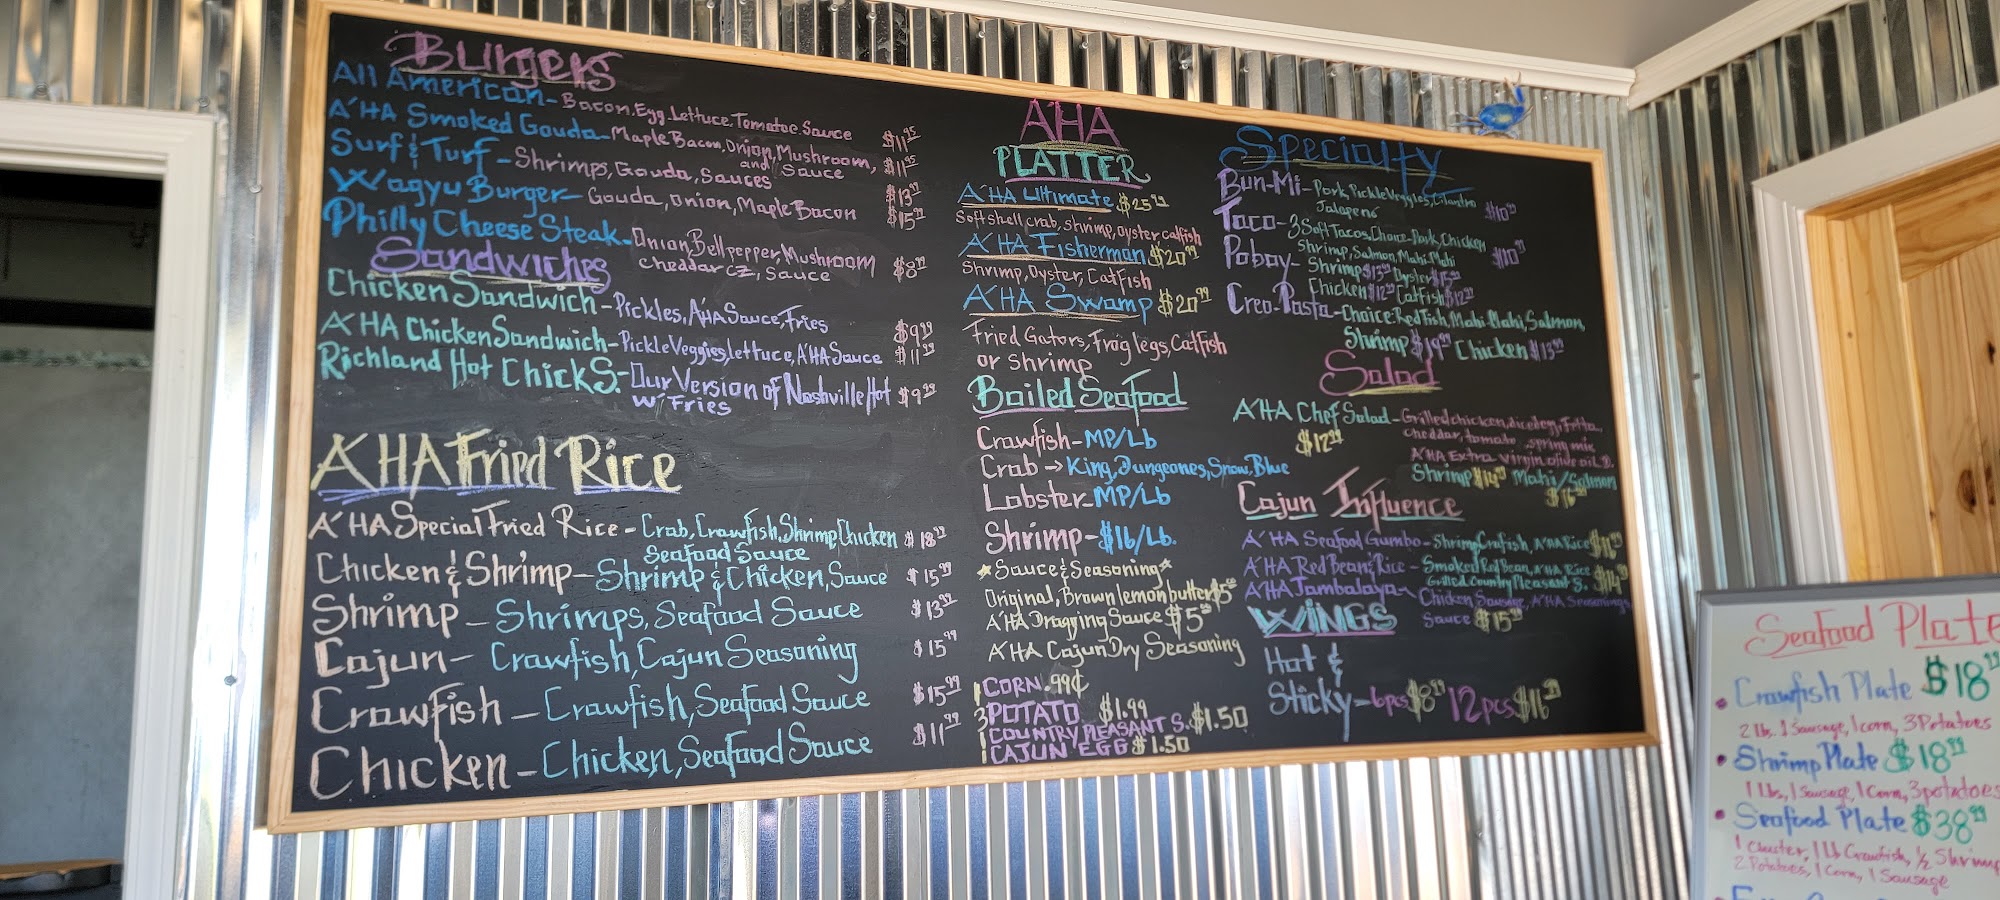 Burgers
All American - Bacon, Egg, Lettuce, Tomatoe, Sauce $11.95
A'HA Smoked Gouda - Maple Bacon, Onion, Mushroom, $11.95
and Sauce
Surf & Turf - Shrimps, Gouda, Sauces $13
Wagyu Burger - Gouda, Onion, Maple Bacon $15
Philly Cheese Steak - Onion, Bell pepper, Mushroom $8
Cheddar CZ, Sauce
Sandwiches
Chicken Sandwich - Pickles, A'HA Sauce, Fries $9.99
A'HA Chicken Sandwich - Pickle Veggies, lettuce, A'HA Sauce $11.99
Richland Hot Chick S. - Our Version of Nashville Hot $9.99
W/ Fries
A'HA Fried Rice
A'HA Special Fried Rice - Crab, Crawfish, Shrimp, Chicken $18.99
Seafood Sauce
Chicken & Shrimp - Shrimp & Chicken, Sauce $15.99
Shrimp - Shrimps, Seafood Sauce $13.99
Cajun - Crawfish, Cajun Seasoning $15.99
Crawfish - Crawfish, Seafood Sauce $15.99
Chicken - Chicken, Seafood Sauce $11.99
A'HA
PLATTER
A'HA Ultimate $25
Soft shell crab, shrimp, oyster catfish
A'HA Fisherman $20.99
Shrimp, Oyster, Catfish
A'HA Swamp $20.99
Fried Gators, Frog legs, Catfish
or Shrimp
Boiled Seafood
Crawfish - MP/Lb
Crab → King, Dungeones, Snow, Blue
Lobster - MP/Lb
Shrimp - $16/Lb.
*Sauce & Seasoning*
Original, Brown lemon butter $5
A'HA Dragging Sauce $5
A'HA Cajun Dry Seasoning
1 CORN .99¢
3 POTATO $1.99
1 COUNTRY PLEASANT S. $1.50
1 CAJUN EGG $1.50
Specialty
Bun-Mi - Pork, Pickle Veggies, Cilantro $10
Jalapeno
Taco - 3 Soft Tacos, Choice - Pork, Chicken $10
Shrimp, Salmon, Mahi-Mahi
Poboy - Shrimp $13 Oyster $15
Chicken $12 Catfish $12
Creo-Pasta - Choice: Red Fish, Mahi-Mahi, Salmon,
Shrimp $19 Chicken $13
Salad
A'HA Chef Salad - Grilled chicken, diced egg,
$12 cheddar, tomato, spring mix
A'HA Extra virgin olive oil D.
Shrimp $14 Mahi/Salmon
$16
Cajun Influence
A'HA Seafood Gumbo - Shrimp, Crafish, A'HA Rice
A'HA Red Bean & Rice - Smoked Red Bean, A'HA Rice $14
Grilled Country Pleasant S.
A'HA Jambalaya - Chicken Sausage, A'HA Seasonings
Sauce $15
WiNGS
Hot &
Sticky - 6pcs $8 12pcs $16
Seafood Plate
• Crawfish Plate $18
2 lb, 1 Sausage, 1 corn, 3 Potatoes
• Shrimp Plate $18.99
1 Lbs, 1 Sausage, 1 Corn, 3 potatoes
• Seafood Plate $38.99
1 Cluster, 1 Lb Crawfish, ½ Shrimp
2 Potatoes, 1 Corn, 1 Sausage